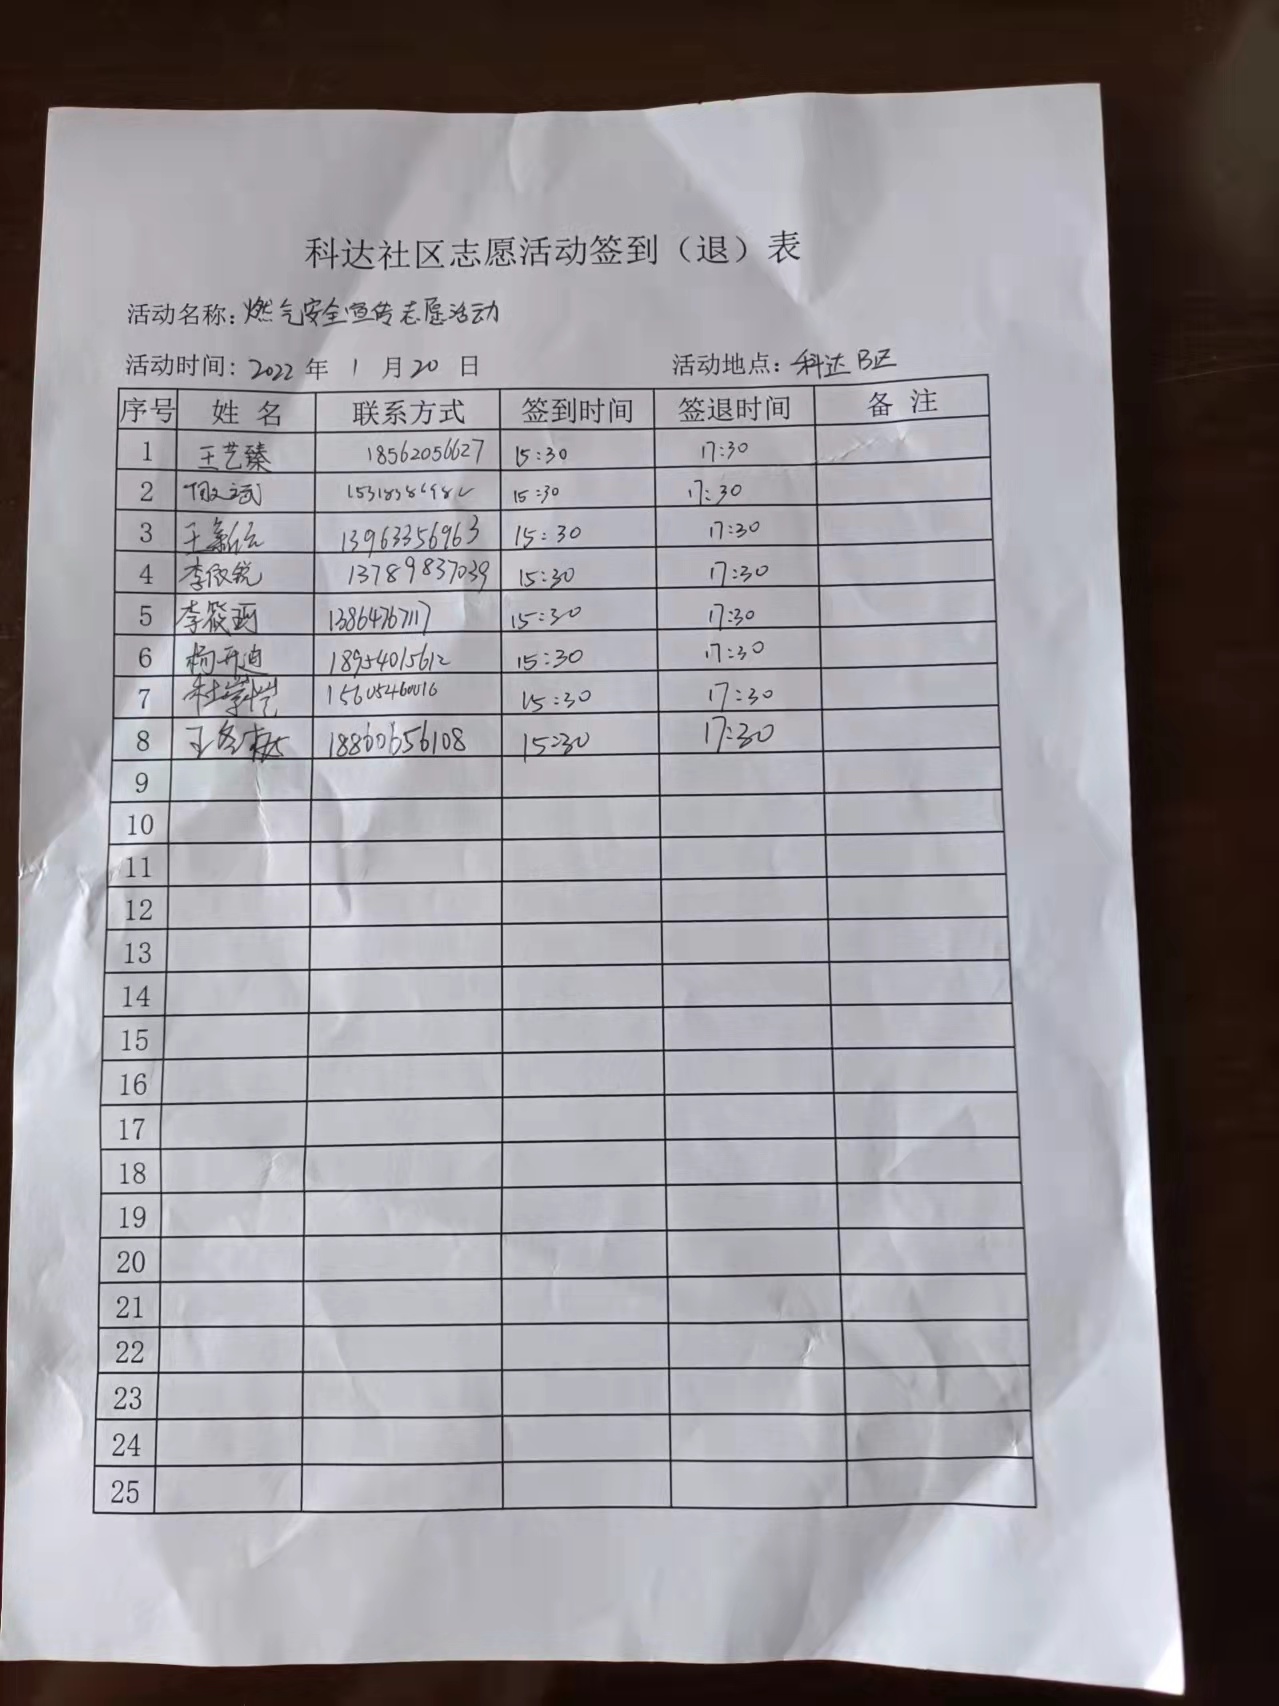 科达社区志愿活动签到（退）表
活动名称：燃气安全宣传志愿活动
活动时间：2022 年 1 月 20 日 活动地点：科达B区
序号 姓名 联系方式 签到时间 签退时间 备注
1 王艺臻 18562056627 15:30 17:30
2 15:30 17:30
3 王 13963356963 15:30 17:30
4 李 锐 13789837039 15:30 17:30
5 李筱 13864767117 15:30 17:30
6 杨 迪 18954015612 15:30 17:30
7 杜 15605460016 15:30 17:30
8 王 15:30 17:30
9
10
11
12
13
14
15
16
17
18
19
20
21
22
23
24
25